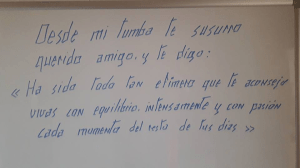 Desde mi tumba te susurro
querido amigo, y te digo:
« Ha sido todo tan efímero que te aconsejo
vivas con equilibrio, intensamente y con pasión
cada momento del resto de tus días »